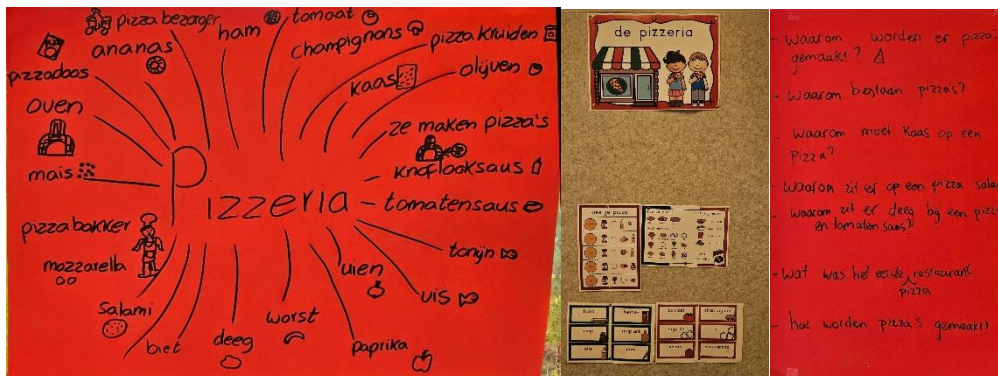 pizzabezorger
ham
tomaat
champignons
pizzakruiden
ananas
kaas
olijven
pizzadoos
oven
ze maken pizza's
knoflooksaus
mais
Pizzeria
tomatensaus
pizzabakker
tonijn
mozzarella
uien
vis
salami
biet
deeg
worst
paprika
de pizzeria
- Waarom worden er pizza's
gemaakt?
- waarom bestaan pizzas?
- waarom moet kaas op een
pizza?
- waarom zit er op een pizza
- waarom zit er deeg bij een
en tomatensaus?
- wat was het eerste restaurant
pizza
- hoe worden pizza's gemaakt?